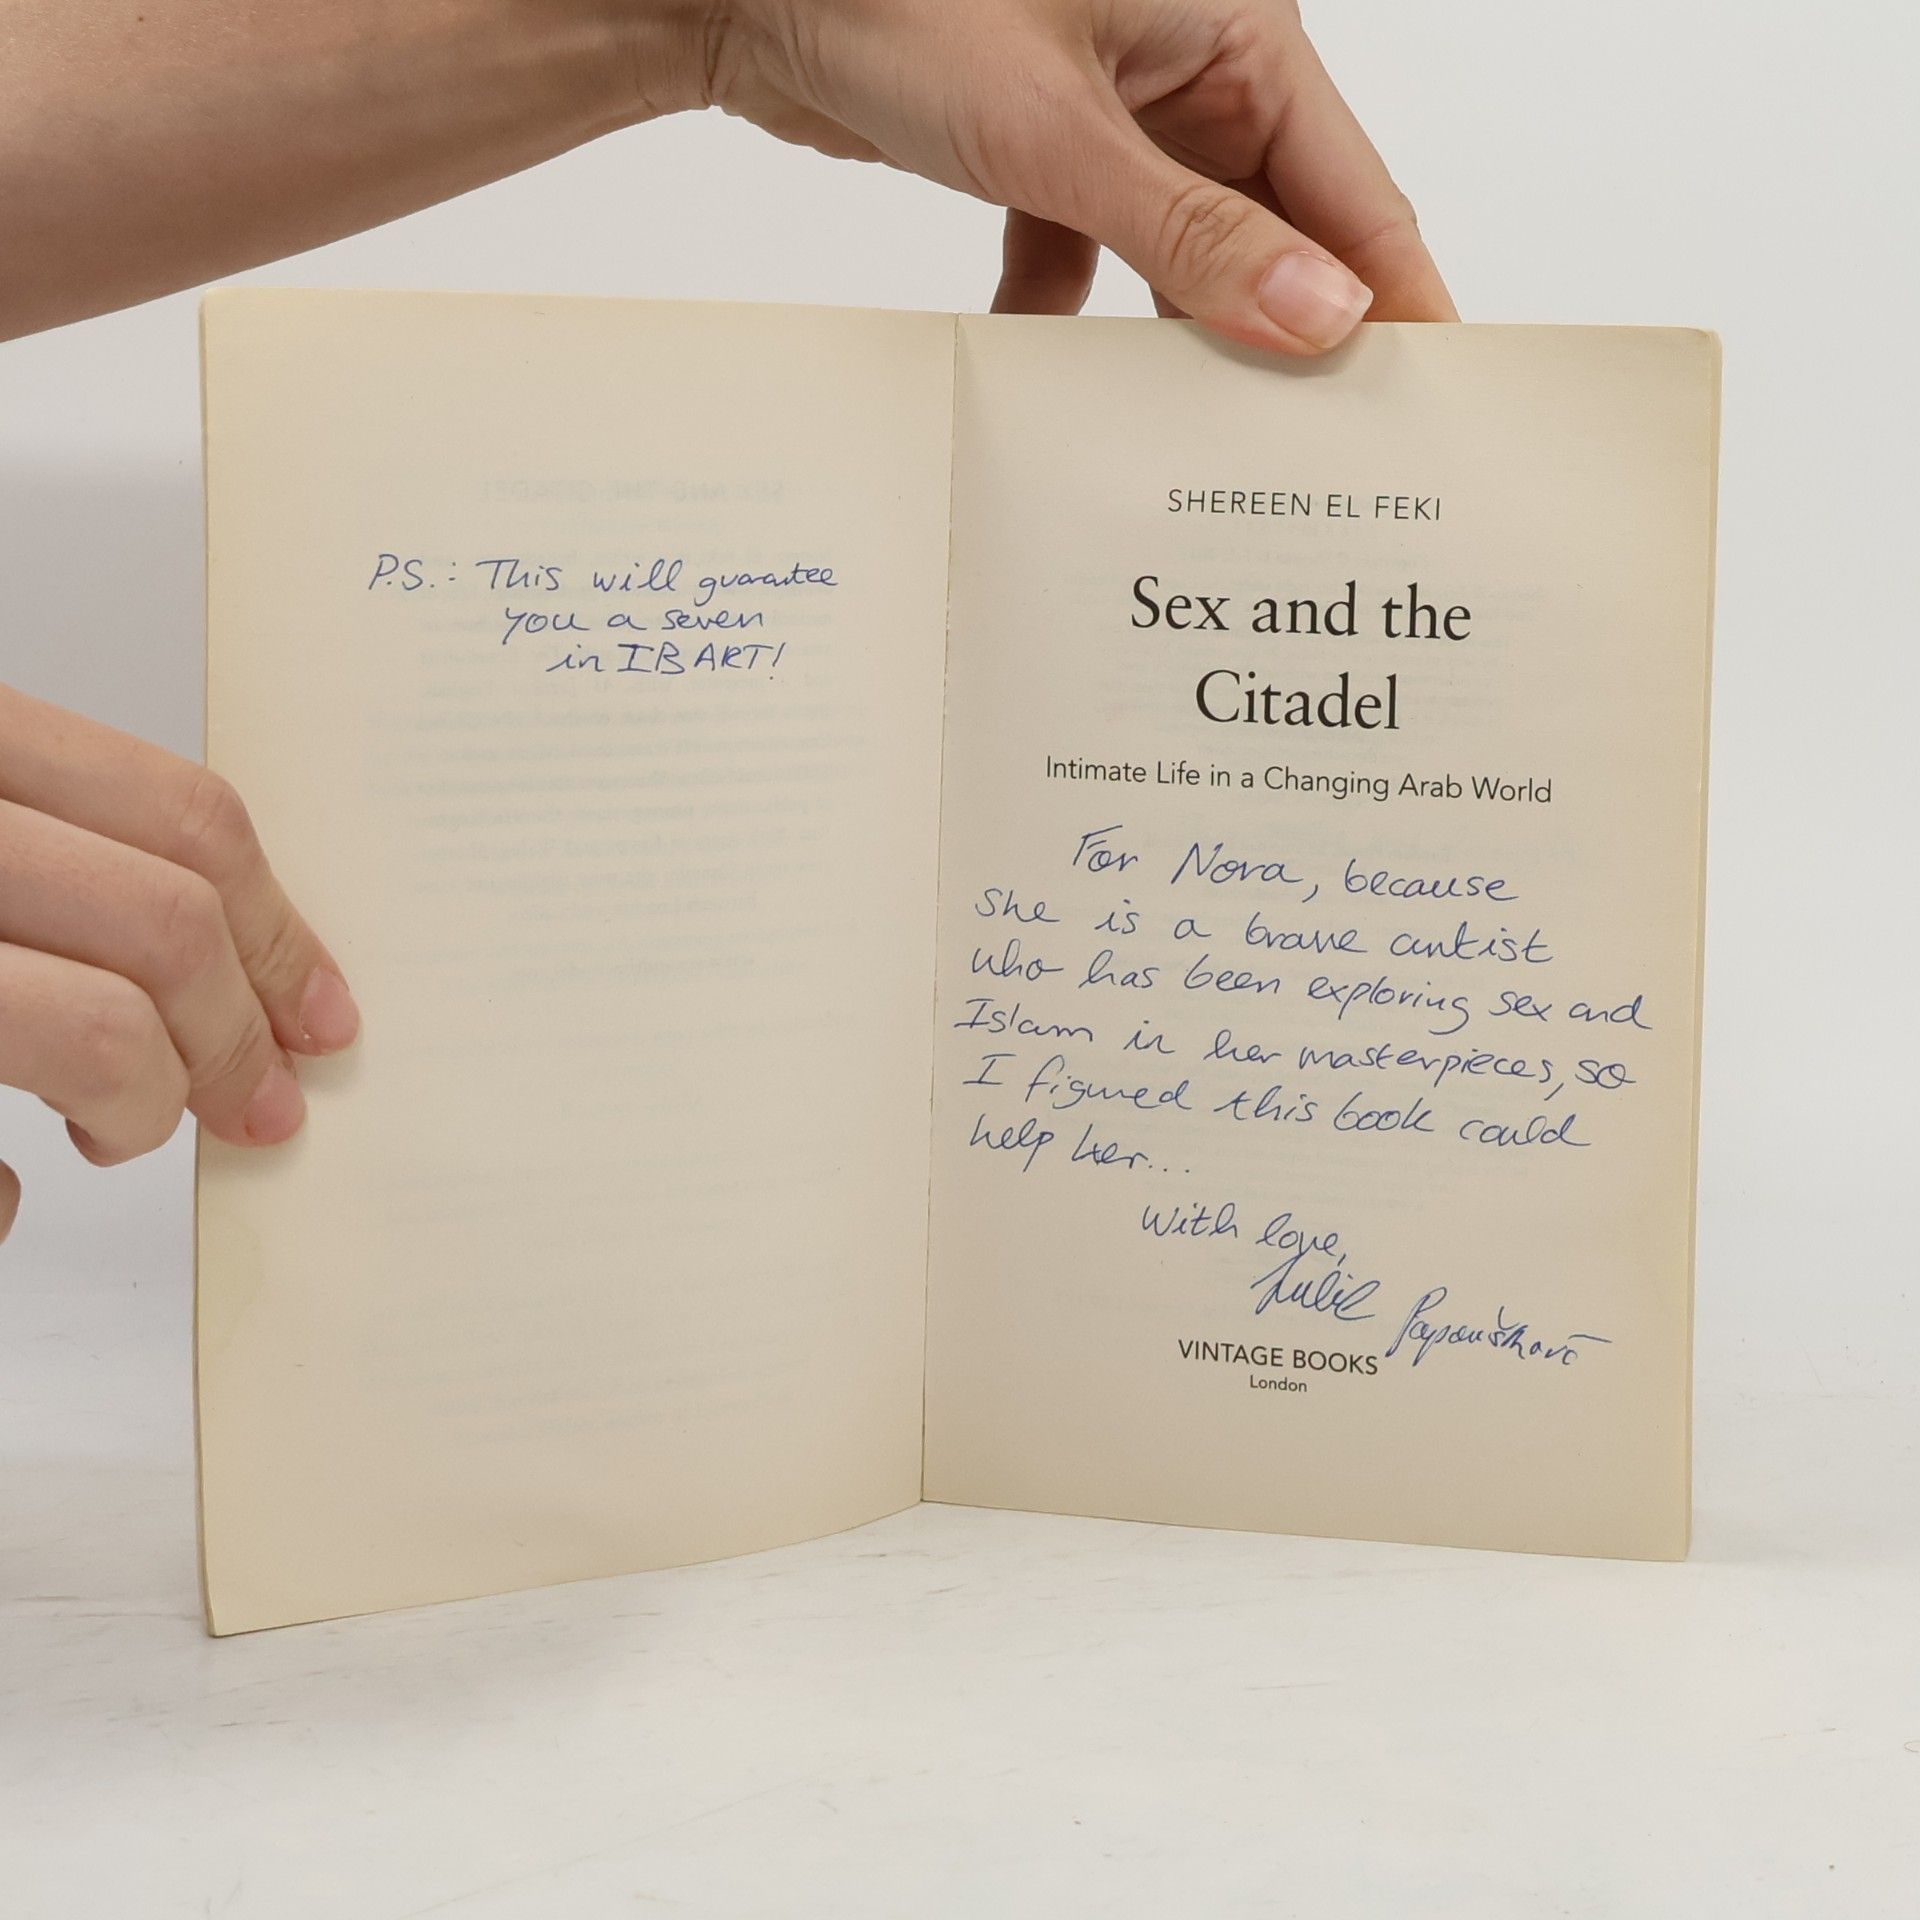 P.S.: This will guarantee
you a seven
in IB ART!
SHEREEN EL FEKI
Sex and the
Citadel
Intimate Life in a Changing Arab World
For Nora, because
she is a brave artist
who has been exploring sex and
Islam in her masterpieces, so
I figured this book could
help her...
With love,
Papoušková
VINTAGE BOOKS
London